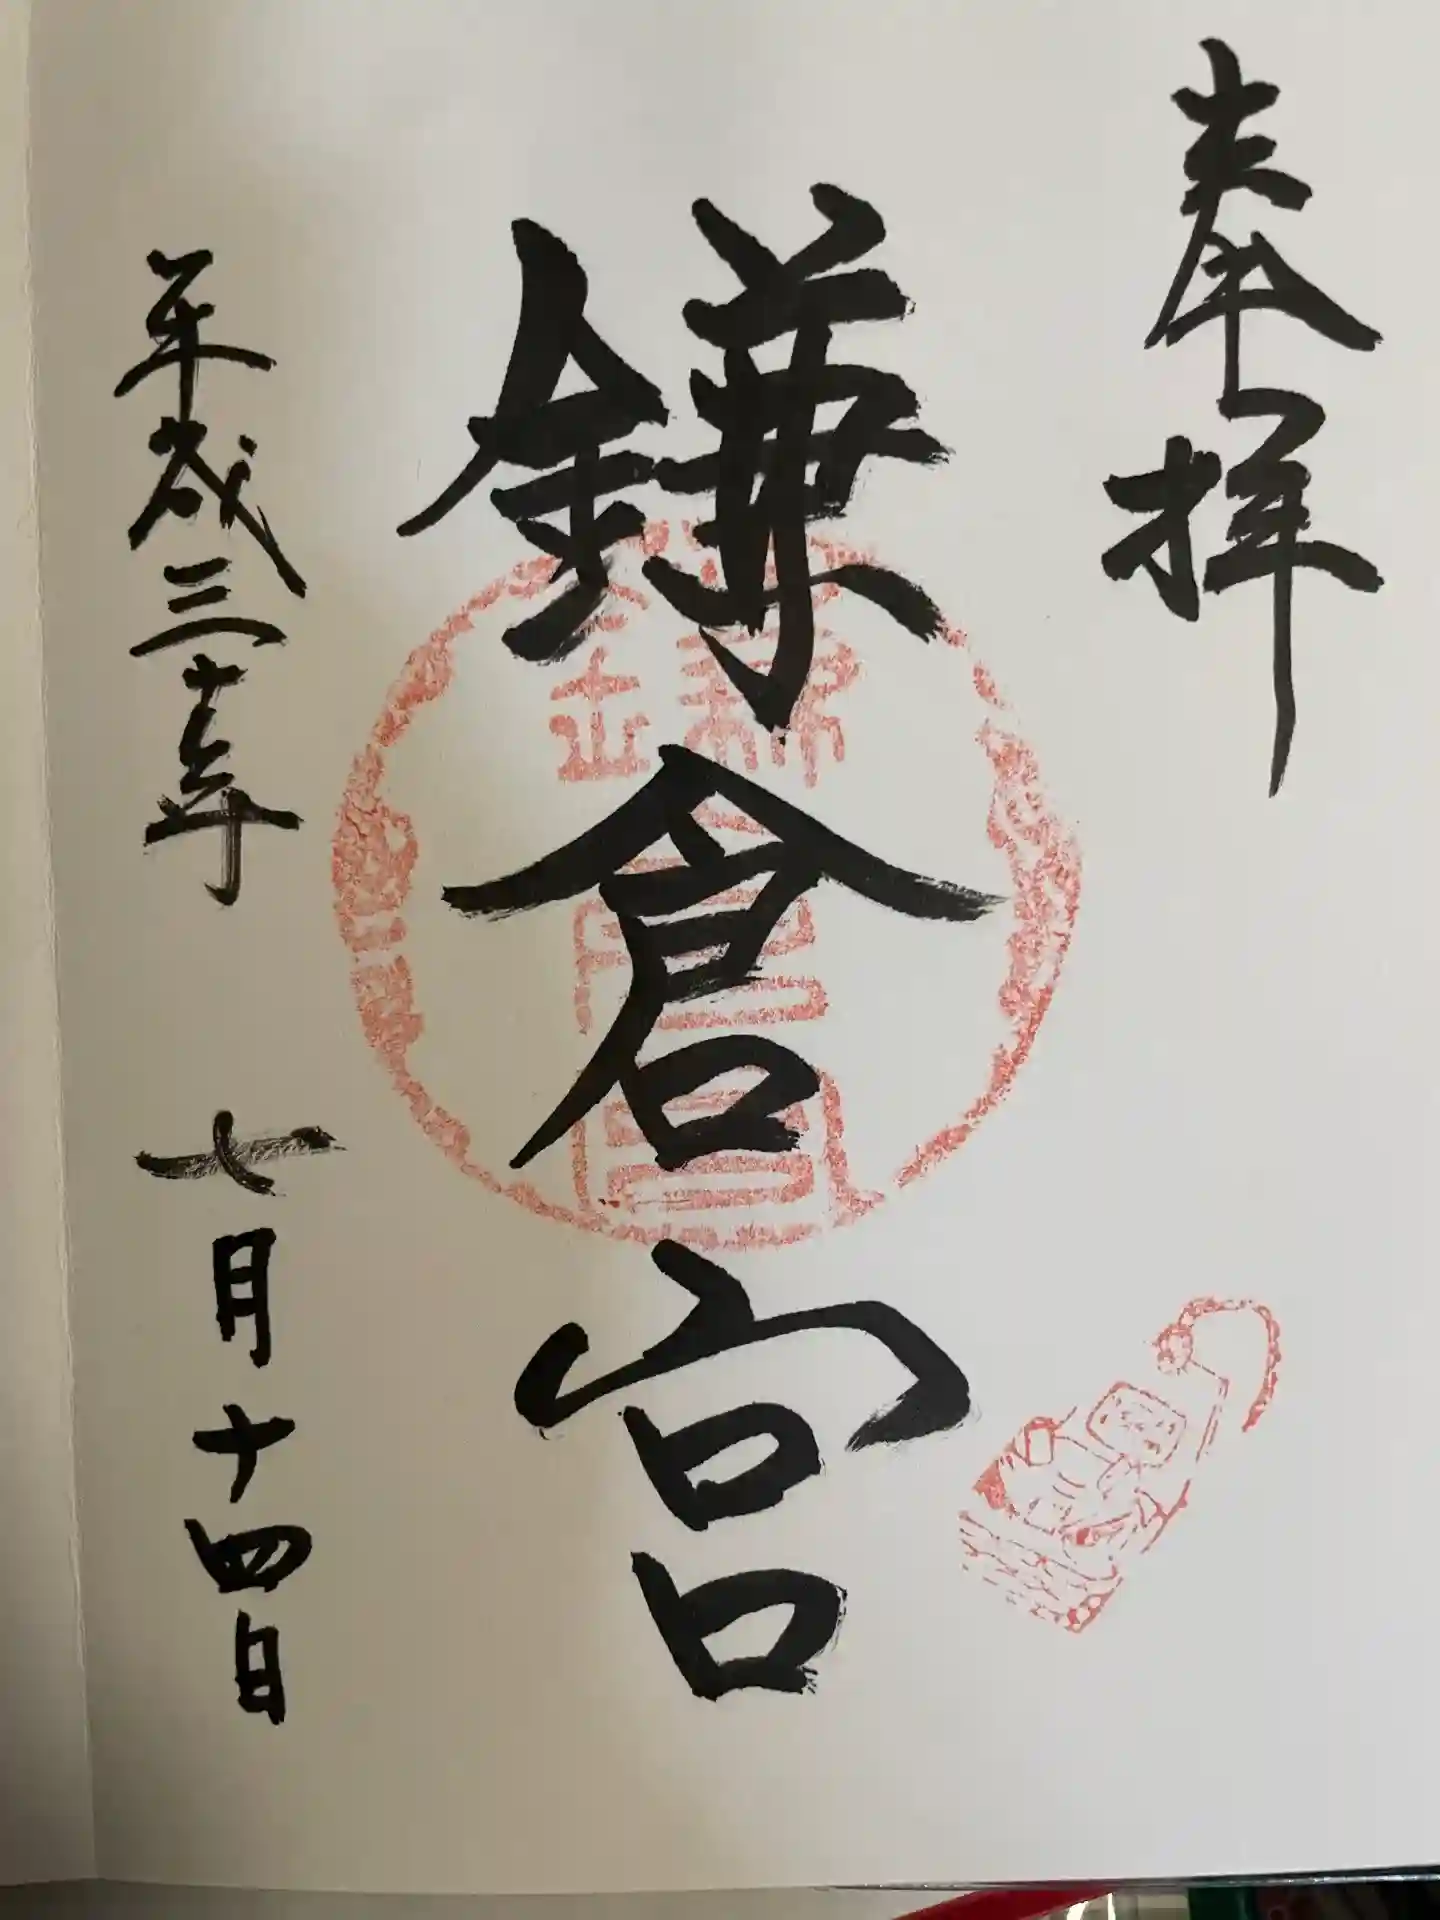 奉拝
鎌倉宮
平成三十年 七月十四日